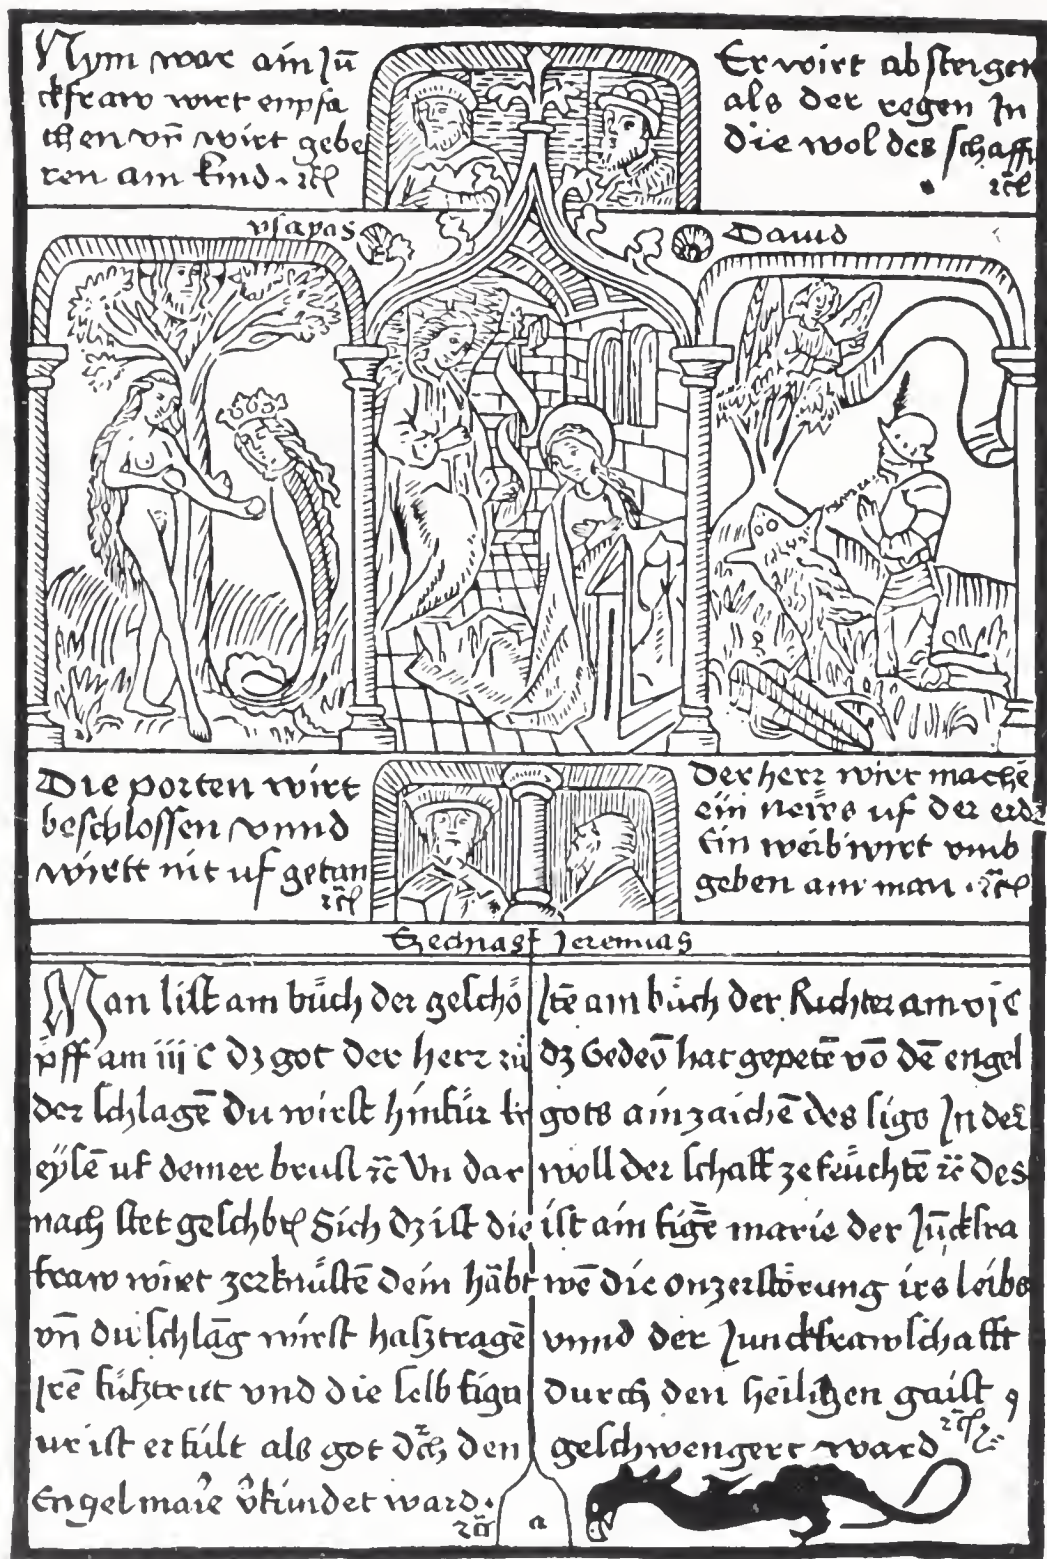 Nym war ain Jū
ckfraw wirt enpfa
chen vn̄ wirt gebe
ren am kind · rc̄
Er wirt absteigen
als der regen In
die wol des schaffs
rc̄
ysayas
Dauid
Die porten wirt
beschlossen vnnd
wirtt nit uf getan
rc̄
Der herr wirt machē
ein neẅs uf der erdē
Ein weib wirt vmb
geben am man · rc̄
Ezechias Jeremias
Man list am bůch der geschö
pff am iij c dz got der herr zů
der schlagē Du wirst hinfür kr
eÿsē uf deiner brust rc̄ Vn dar
nach stet geschbē Sich dz ist die
fraw wirt zerknüstē dein hābt
vn̄ du schlāg wirst hasztragē
Irē fůsztritt vnd die selb figu
ur ist erfült als got dch den
Engel marie v̄kündet ward·
rc̄
Itē am bůch der Richter am vj c
dz Gedeō hat gepetē vō dē engel
gots ain zaichē des sigs In der
woll der schaff ze feüchtē rc̄ des
ist ain figē marie der Jūckfra
wē die onzerstörung irs leibs
vnnd der Junckfrawschafft
durch den heiligen gaist
geschwengert ward
rc̄
a